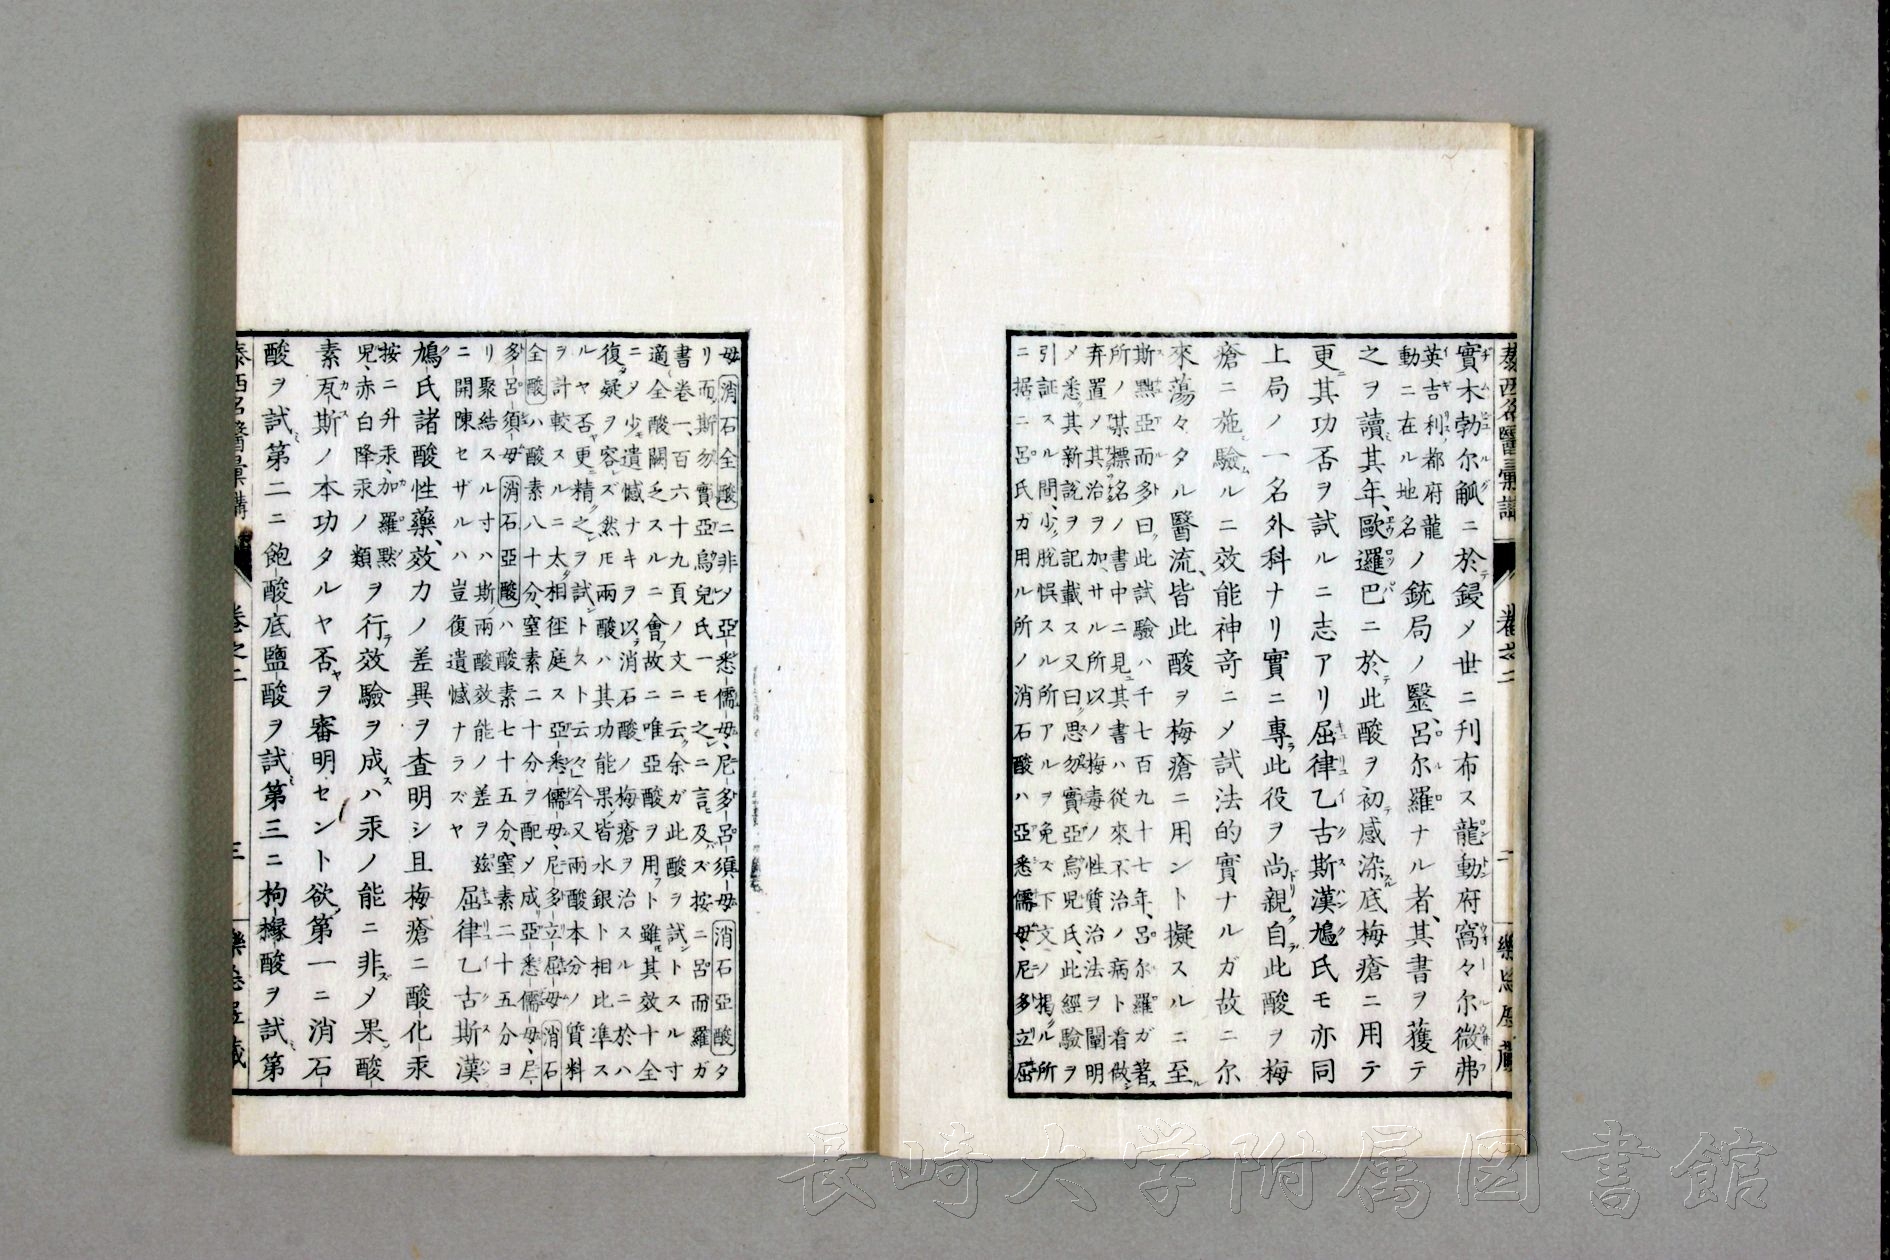 泰西名醫彙講 卷之二 二
實木勃尔觚ニ於テ鋟メ世ニ刊布ス龍動府窩々尔微弗
英吉利ノ都府龍
動ニ在ル地名
ノ銃局ノ鑒呂尔羅ナル者其書ヲ獲テ
之ヲ讀ミ其年歐邏巴ニ於テ此酸ヲ初テ感染底梅瘡ニ用テ
更ニ其功否ヲ試ルニ志アリ屈律乙古斯漢鳩氏モ亦同
上局ノ一名外科ナリ實ニ專ラ此役ヲ尚ドリ親ク自ラ此酸ヲ梅
瘡ニ施シ驗ムルニ效能神奇ニメ試法的實ナルガ故ニ尔
來蕩々タル醫流皆此酸ヲ梅瘡ニ用ント擬スルニ至ル
斯㸃亞而多曰此試驗ハ千七百九十七年呂尔羅ガ著ス
所ノ某標名ノ書中ニ見ユ其書ハ從來不治ノ病ト看做シ
弃置メ其治ヲ加サル所以ノ梅毒ノ性質治法ヲ闡明
メ悉ク其新説ヲ記載ス又曰ク思勿實亞烏児氏此經驗ヲ
引証スル間少ク脱悞スル所アルヲ免ズ下文ノ掲クル所
ニ据ニ呂氏ガ用ル所ノ消石酸ハ亞悉儒母尼多立屈
母消石全酸ニ非ソ亞悉儒母尼多呂須母消石亞酸タ
リ而斯勿實亞烏兒氏一モ之ニ言及ズ按ニ呂而羅ガ
書卷一百六十九頁ノ文ニ云ク余ガ此酸ヲ試ントスル寸
適全酸闕乏スルニ會フ故ニ唯亞酸ヲ用フト雖モ其效十全
ニメ少モ遺憾ナキヲ以ラ消石酸ノ梅瘡ヲ治スルニ於ハ
復タ疑ヲ容レズ然モ兩酸ハ其功能果ノ皆水銀ト相比準ス
ルヤ否ヤ更ニ精ク之ヲ試ントスト云々今又兩酸本分ノ質料
ヲ計較スルニ太タ相徑庭ス亞悉儒母尼多立屈母消石
全酸ハ酸素八十分窒素二十分ヲ配メ成リ亞悉儒母尼
多呂須母消石亞酸ハ酸素七十五分窒素二十五分ヨ
リ聚結スル寸ハ斯ノ兩酸效能ノ差ヲ茲
ニ開陳セザルハ豈復遺憾ナラズヤ
屈律乙古斯漢
鳩氏諸酸性藥效カノ差異ヲ査明シ且梅瘡ニ酸化汞
按ニ升汞加羅㸃
兒赤白降汞ノ類
ヲ行テ效驗ヲ成スハ汞ノ能ニ非ズメ果ノ酸
素瓦斯ノ本功タルヤ否ヤヲ審明セント欲メ第一ニ消石
酸ヲ試ミ第二ニ飽酸底鹽酸ヲ試ミ第三ニ枸櫞酸ヲ試ミ第
泰西名醫彙講 卷之二 三